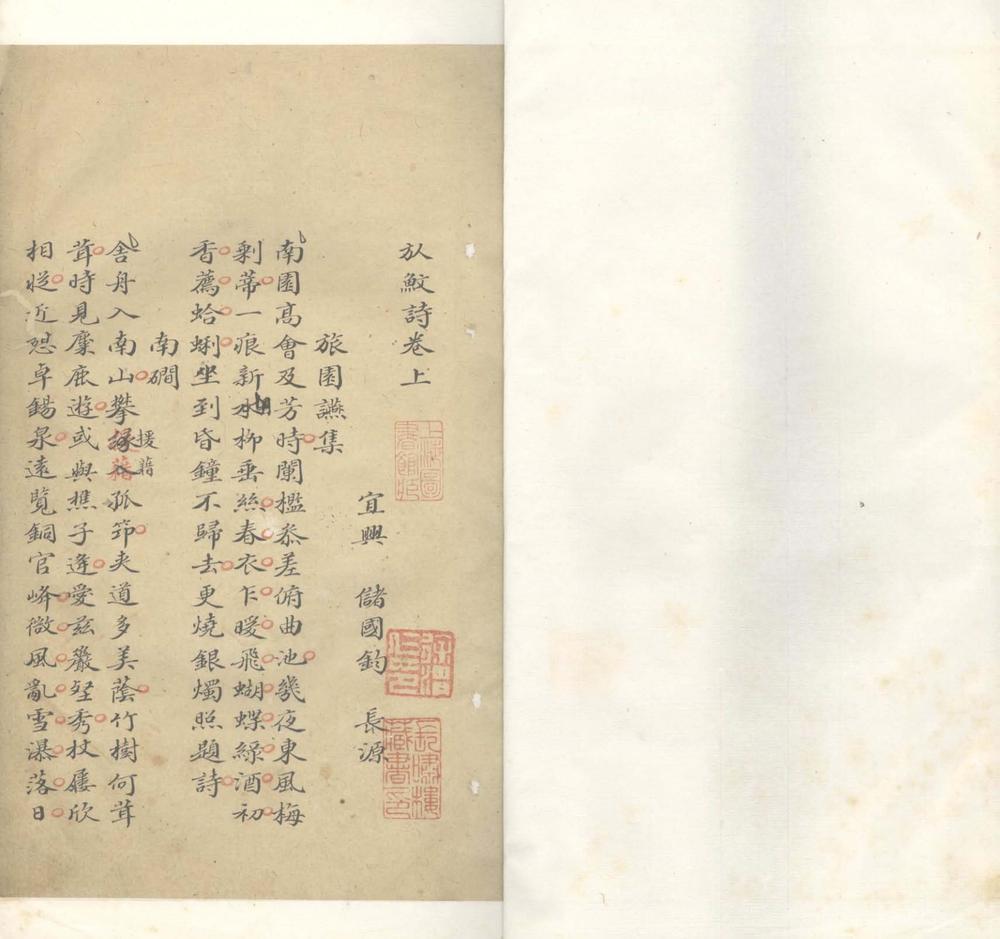 放鮫詩卷上
宜興　儲國鈞　長源
旅園讌集
南園高會及芳時闌檻叅差俯曲池幾夜東風梅
剩蒂一痕新水柳垂絲春衣乍暖飛蝴蝶綠酒初
香薦蛤蜊坐到昏鐘不歸去更燒銀燭照題詩
南磵
舍舟入南山攀緣入孤筇夾道多美蔭竹樹何茸
援藉
茸時見麋鹿遊或與樵子逢愛茲巖壑秀杖屨欣
相從近憩卓錫泉遠覽銅官峰微風亂雪瀑落日
上海圖書館藏
藏書印